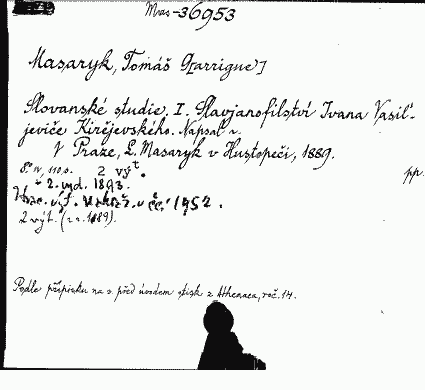 Mas-36953
Masaryk, Tomáš G[arrigue]
Slovanské studie. I. Slavjanofilství Ivana Vasil'-
jeviče Kirějevského. Napsal ~.
V Praze, L. Masaryk v Hustopeči, 1889.
8° IV, 110 s. 2 výt.
pp.
2. vyd. 1893.
výt. v čč. 1952.
2 výt. (z r. 1889).
Podle přípisku na s před úvodem otisk z Athenaea, roč. 14.